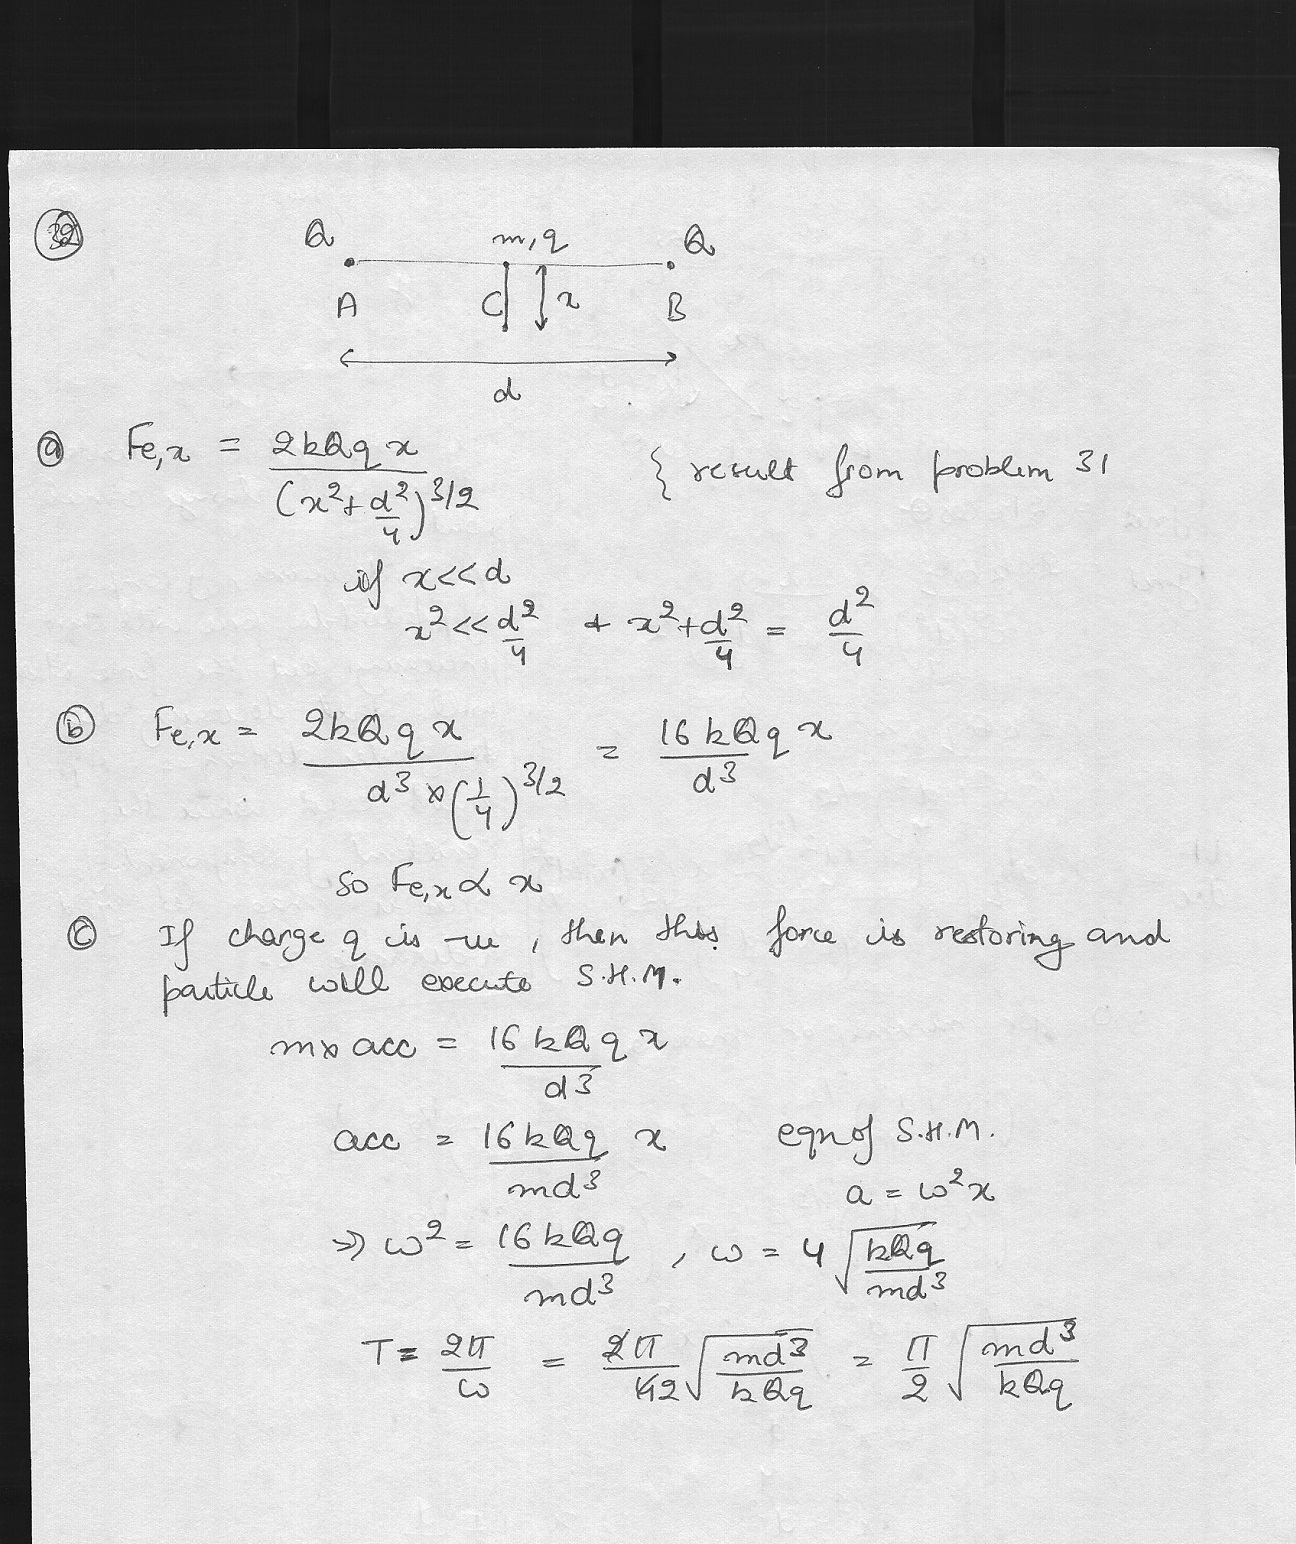 32
Q m,q Q
A C x B
d
(a) Fe,x = 2kQq x / (x² + d²/4)^3/2 { result from problem 31
if x<<d
x² << d²/4 & x² + d²/4 = d²/4
(b) Fe,x = 2kQq x / d³ × (1/4)^3/2 = 16 kQq x / d³
so Fe,x ∝ x
(c) If charge q is -ve, then this force is restoring and
particle will execute S.H.M.
m × acc = 16 kQq x / d³
acc = 16 kQq / md³ x eqn of S.H.M.
a = ω²x
=> ω² = 16 kQq / md³ , ω = 4 √(kQq / md³)
T = 2π / ω = 2π / 42 √(md³ / kQq) = π / 2 √(md³ / kQq)